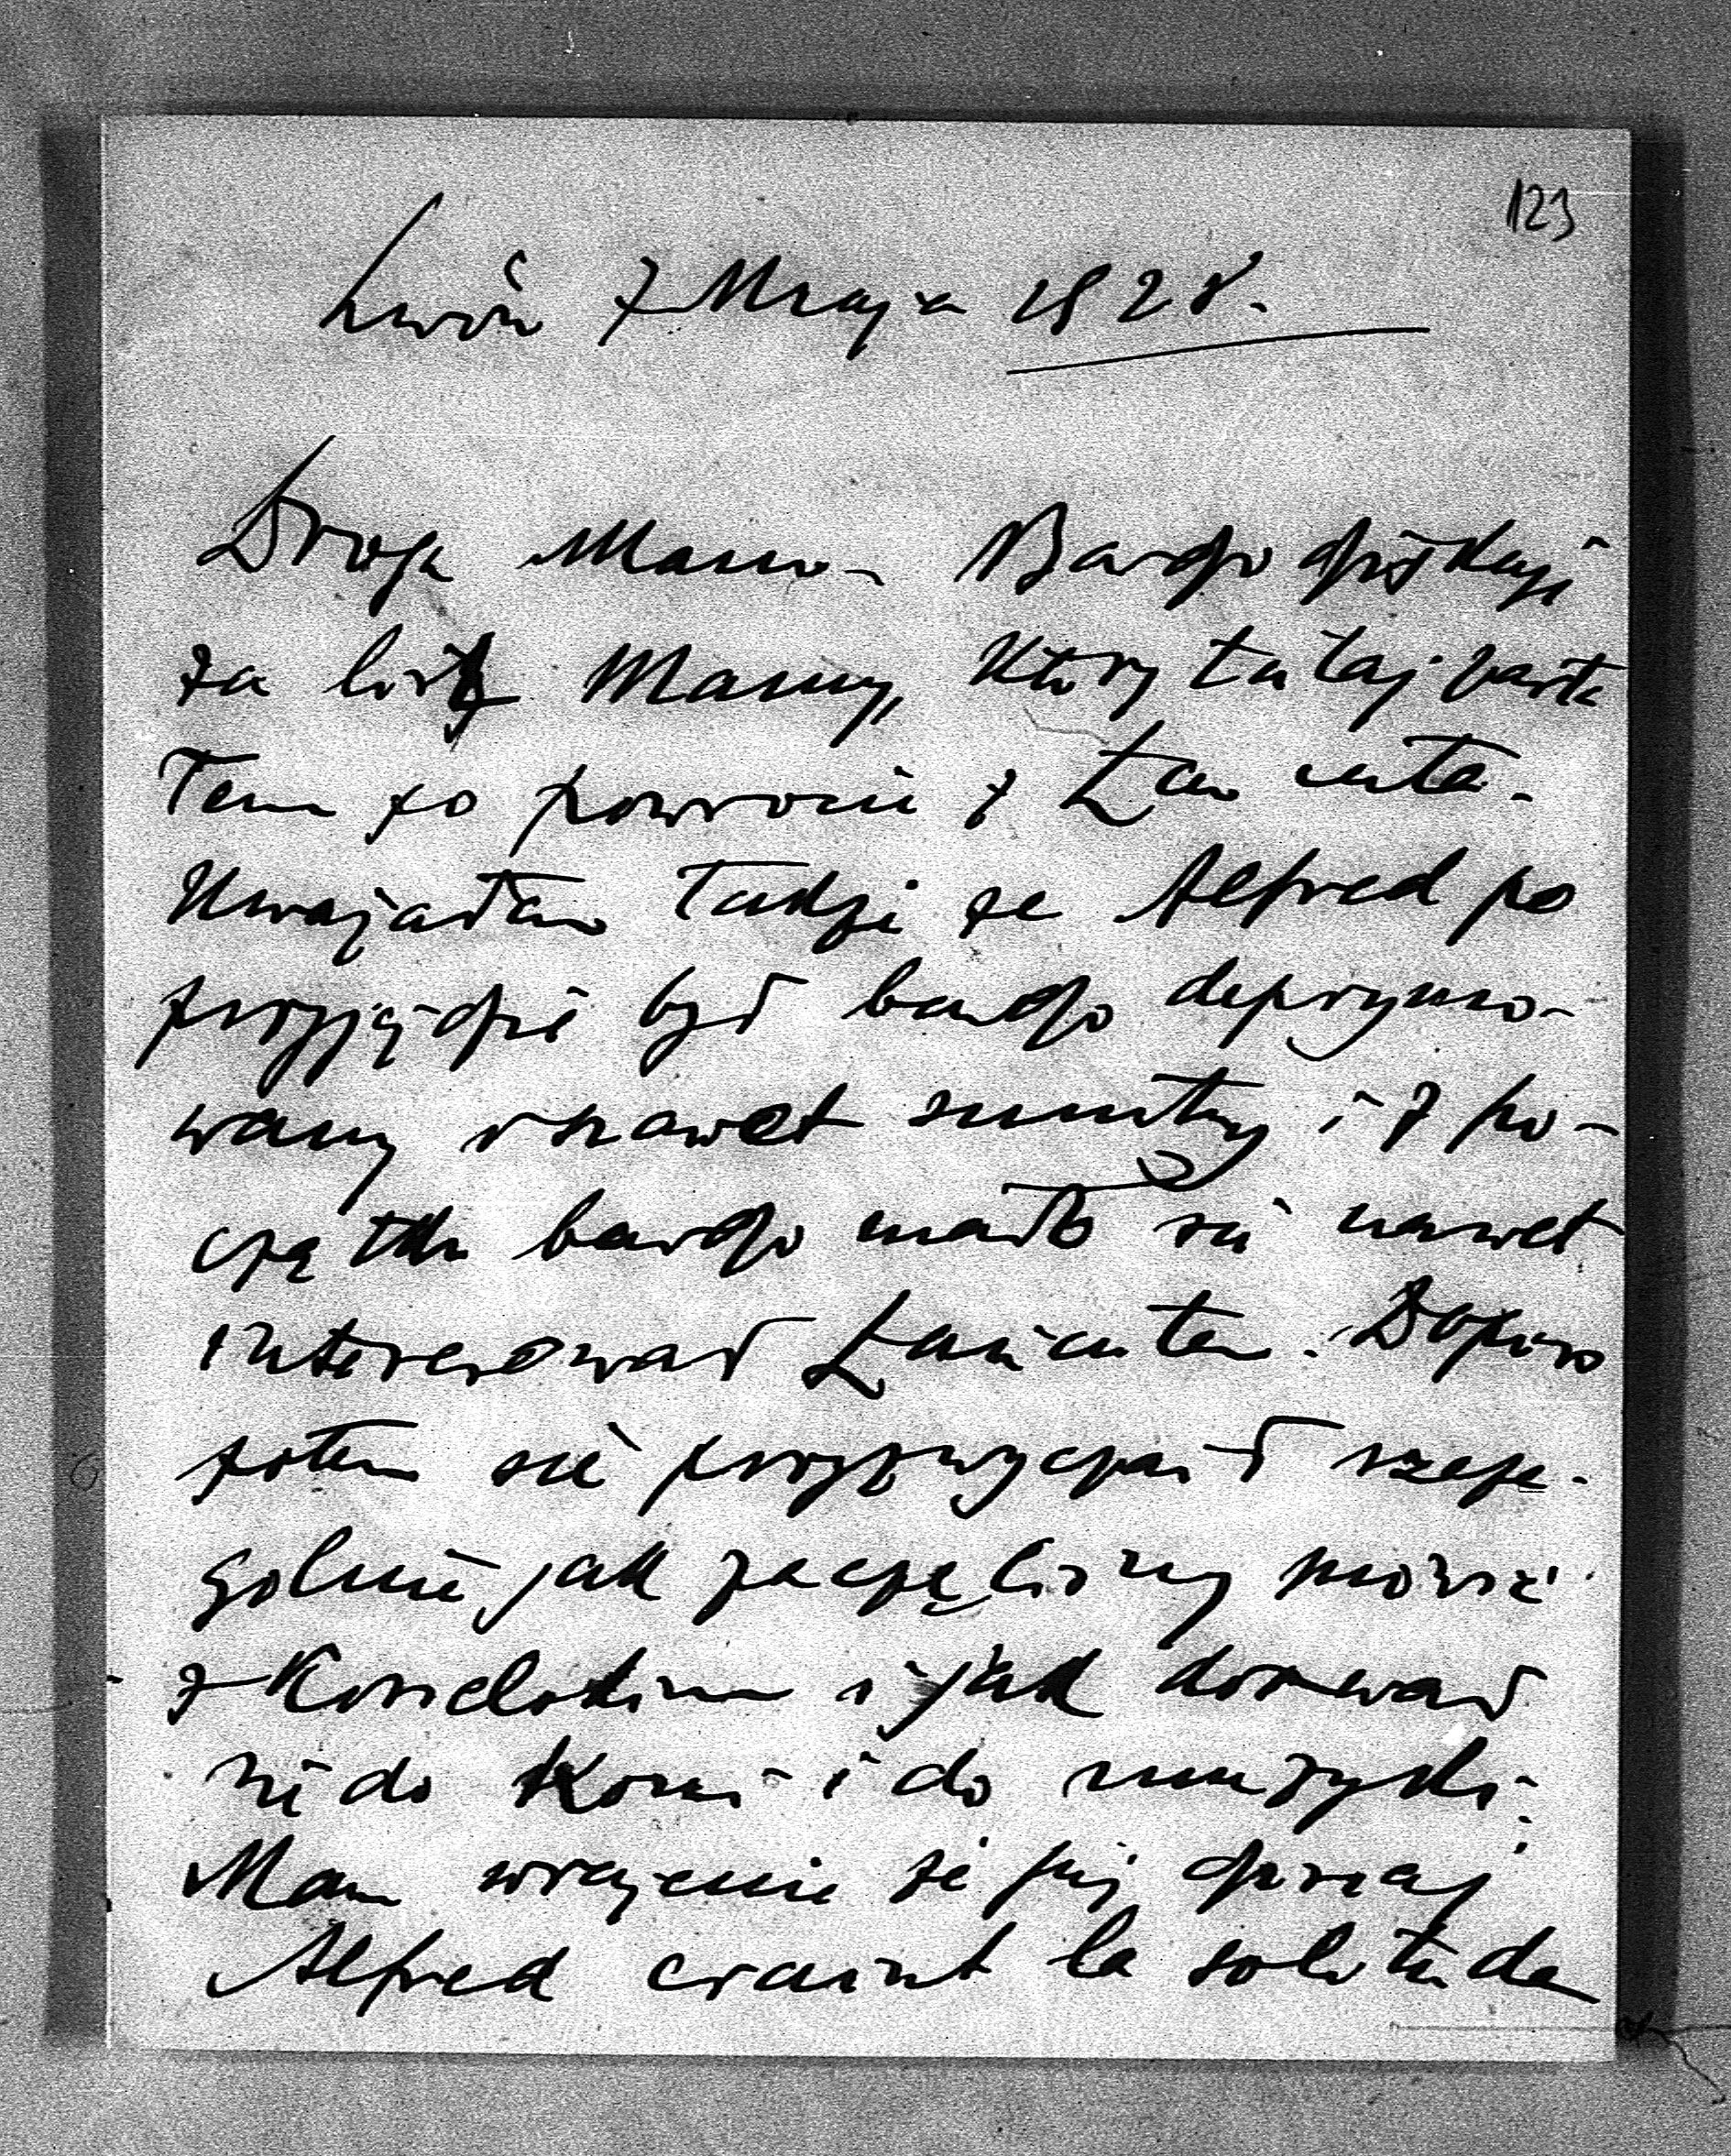 123
Lwów 7 Maja 1928.
Droga Mamo - Bardzo dziękuję
za list Mamy, który tutaj
tem po powrocie z Łancuta.
Uważałam także że Alfred po
przyjeździe był bardzo deprymo-
wany i nawet smutny i z po-
czątku bardzo mało się nawet
interesował Łańcutem. Dopiero
potem się przyzwyczaił szcze-
gólnie jak zaczęliśmy mówić
z i jak dorwał
się do koni i do muzyki;
Mam wrażenie że już dzisiaj
Alfred craint la solitude